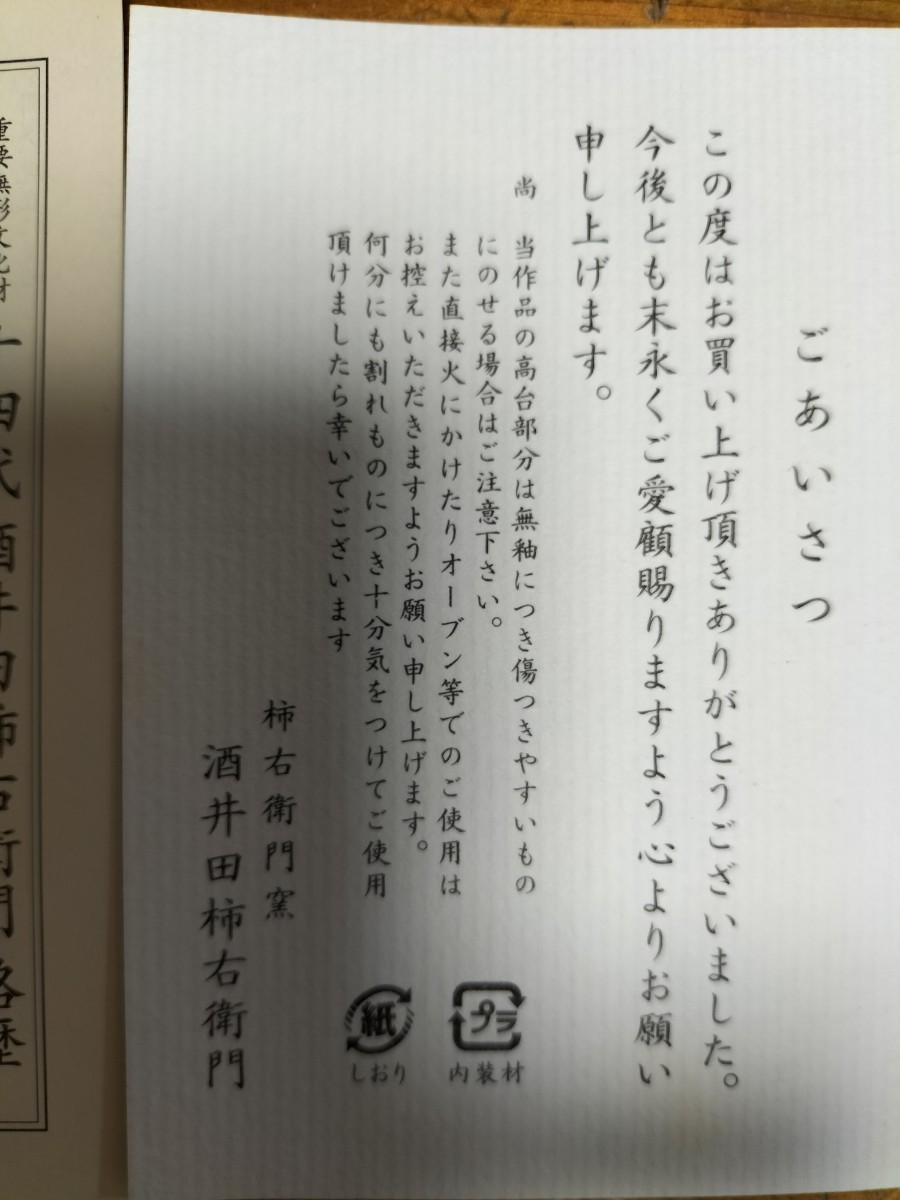 ごあいさつ
この度はお買い上げ頂きありがとうございました。
今後とも末永くご愛顧賜りますよう心よりお願い
申し上げます。
尚 当作品の高台部分は無釉につき傷つきやすいもの
にのせる場合はご注意下さい。
また直接火にかけたりオーブン等でのご使用は
お控えいただきますようお願い申し上げます。
何分にも割れものにつき十分気をつけてご使用
頂けましたら幸いでございます
柿右衛門窯
酒井田柿右衛門
プラ
内装材
紙
しおり
重要無形文化財 十四代酒井田柿右衛門略歴